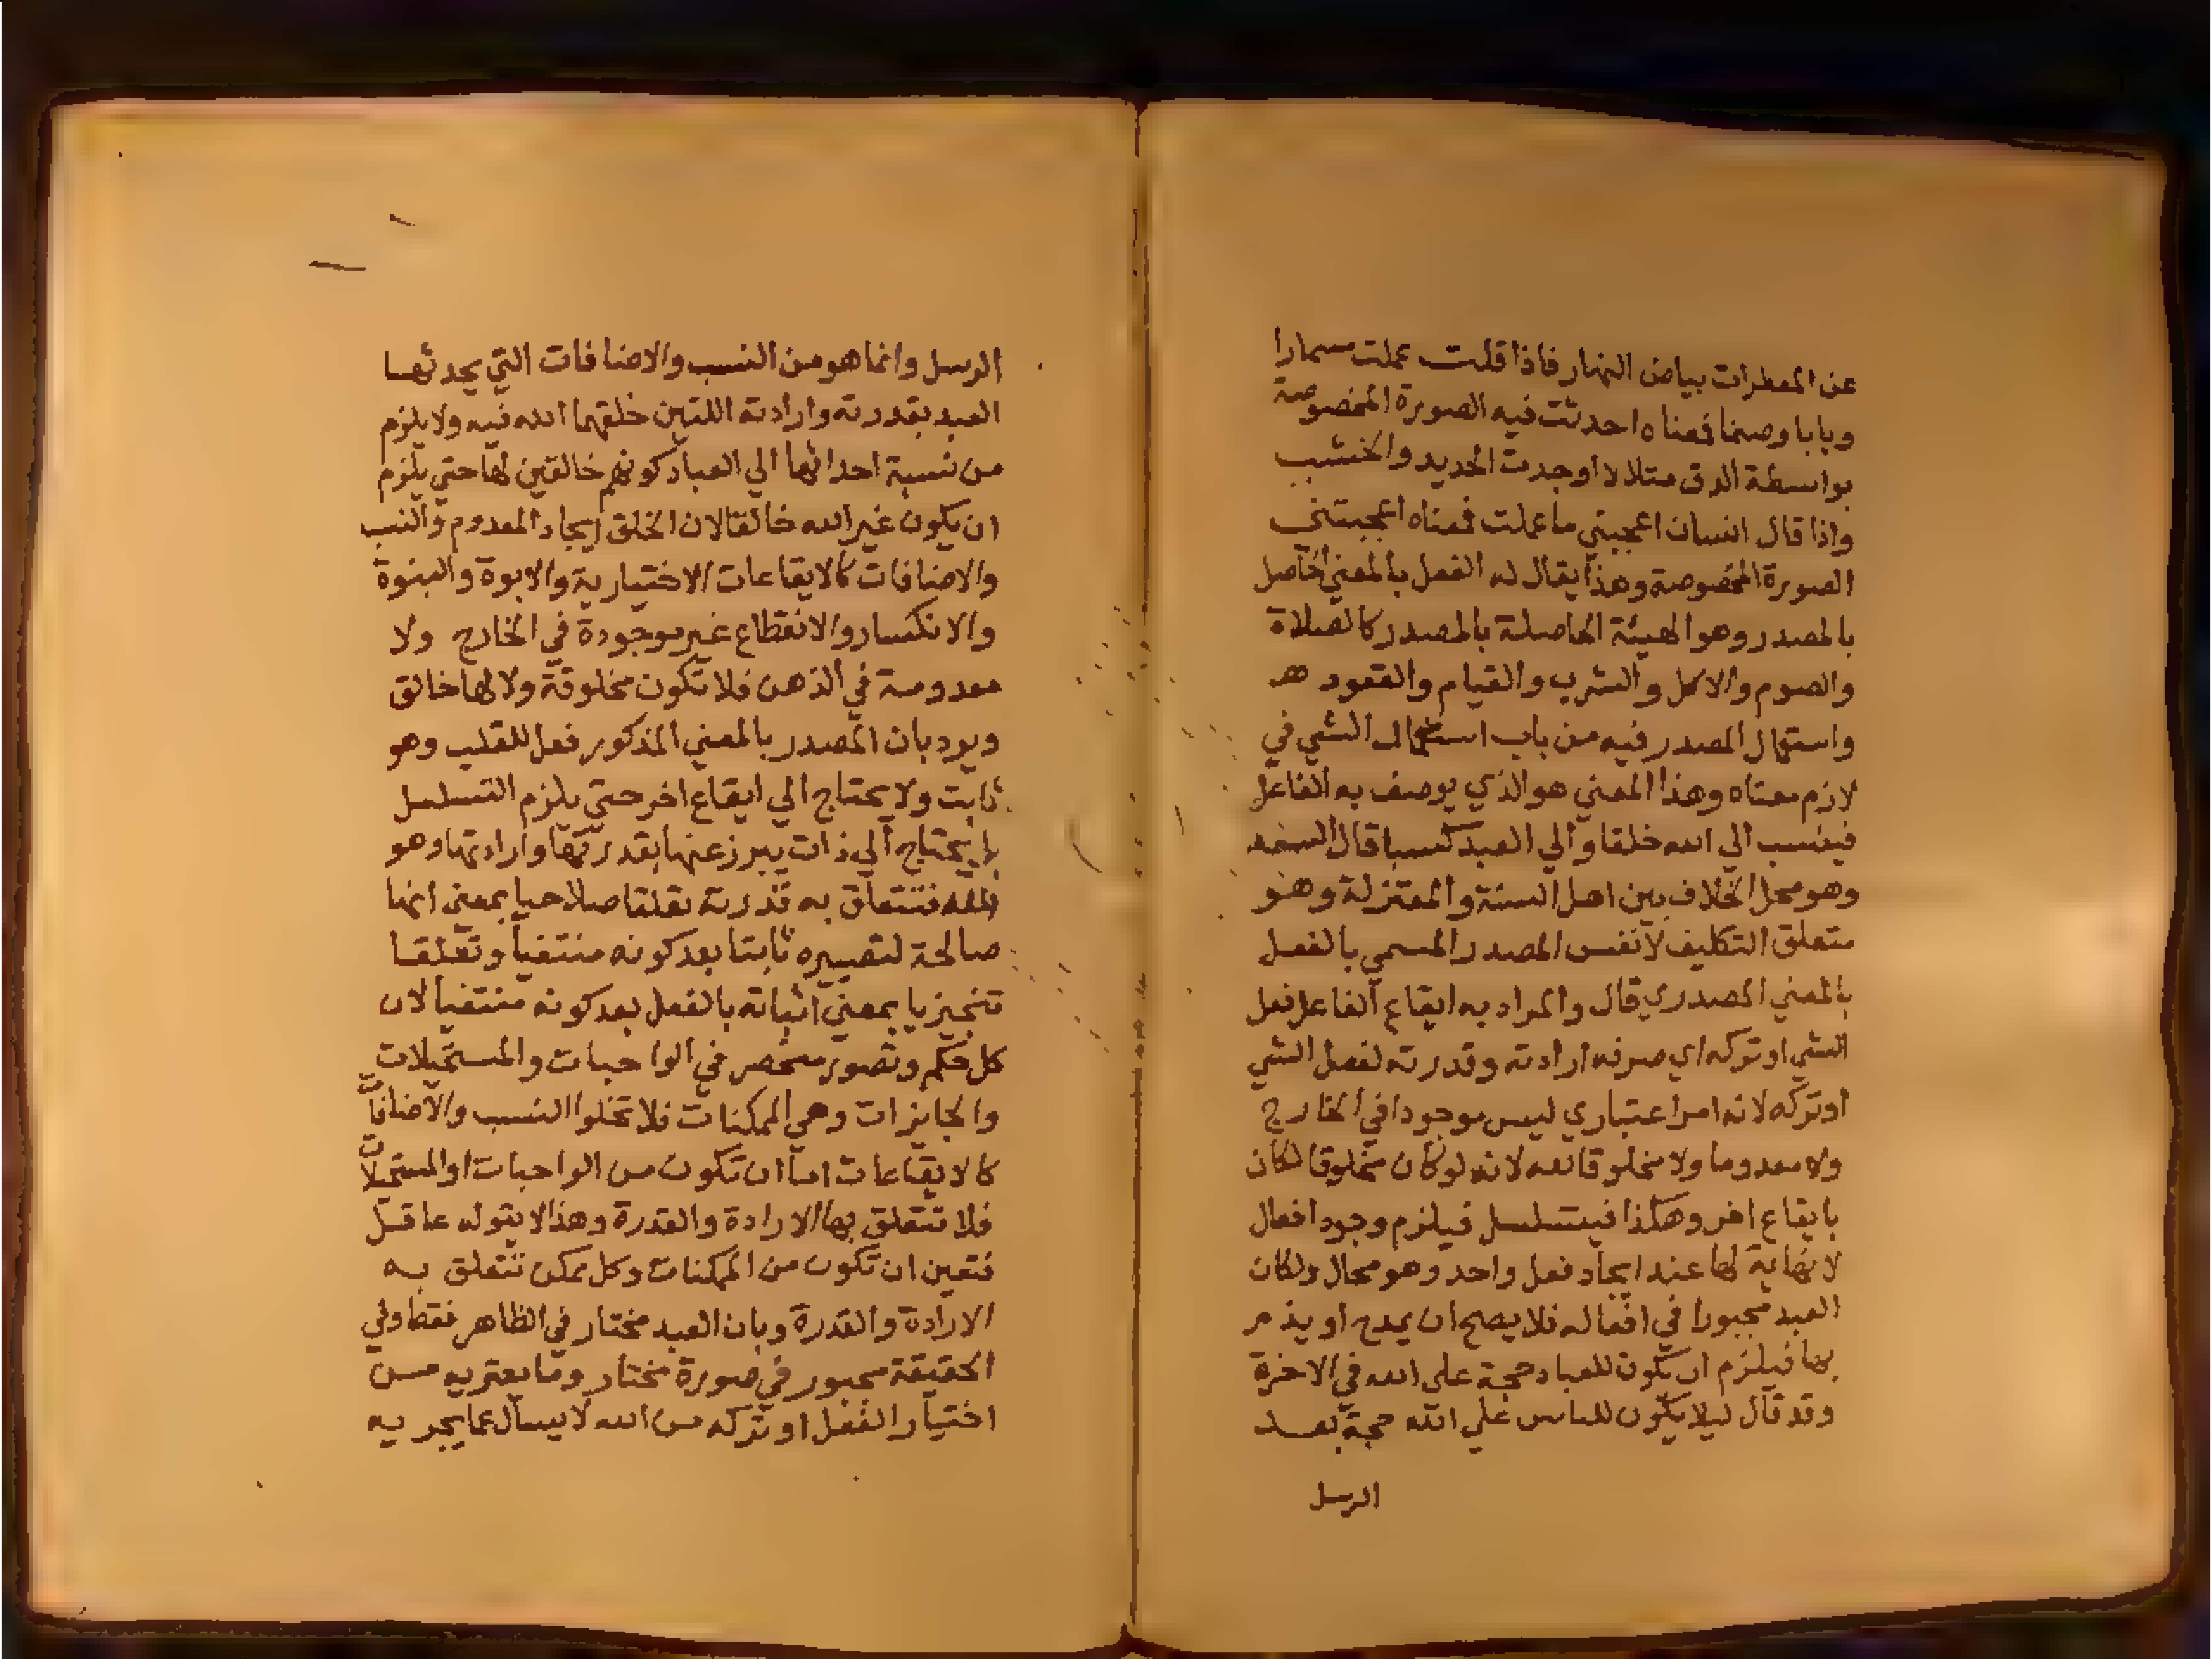 عن المفطرات بياض النهار فاذا قلت عملت مسمارا
وبابا وصنما فمعناه احدثت فيه الصورة المخصوصة
بواسطة الدق مثلا لا اوجدت الحديد والخشب
واذا قال انسان اعجبني ما عملت فمعناه اعجبتني
الصورة المخصوصة وهذا يقال له الفعل بالمعني الحاصل
بالمصدر وهو الهيئة الحاصلة بالمصدر كالصلاة
والصوم والاكل والشرب والقيام والقعود
واستعمال المصدر فيه من باب استعمال الشي في
لازم معناه وهذا المعني هو الذي يوصف به الفاعل
فينسب الي الله خلقا والي العبد كسبا قال السعد
وهو محل الخلاف بين اهل السنة والمعتزلة وهو
متعلق التكليف لا نفس المصدر المسمي بالفعل
بالمعني المصدري قال والمراد به ايقاع الفاعل فعل
الشي او تركه اي صرفه ارادته وقدرته لفعل الشي
او تركه لانه امر اعتباري ليس موجودا في الخارج
ولا معدوما ولا مخلوقا لله لانه لو كان مخلوقا لكان
بايقاع اخر وهكذا فيتسلسل فيلزم وجود افعال
لا نهاية لها عند ايجاد فعل واحد وهو محال ولكان
العبد مجبورا في افعاله فلا يصح ان يمدح او يذم
بها فيلزم ان يكون للعباد حجة علي الله في الاخرة
وقد قال ليلا يكون للناس علي الله حجة بعد
الرسل
الرسل وانما هو من النسب والاضافات التي يحدثها
العبد بقدرته وارادته اللتين خلقهما الله فيه ولا يلزم
من نسبة احداثها الي العباد كونهم خالقين لها حتي يلزم
ان يكون غير الله خالقا لان الخلق ايجاد المعدوم والنسب
والاضافات كالايقاعات الاختيارية والابوة والبنوة
والانكسار والانقطاع غير موجودة في الخارج ولا
معدومة في الذهن فلا تكون مخلوقة ولا لها خالق
ويرد بان المصدر بالمعني المذكور فعل للقلب وهو
ثابت ولا يحتاج الي ايقاع اخر حتي يلزم التسلسل
بل يحتاج الي ذات يبرز عنها بقدرتها وارادتها وهو
الله فتتعلق به قدرته تعلقا صلاحيا بمعني انها
صالحة لتصييره ثابتا بعد كونه منتفيا وتعلقا
تنجيزيا بمعني اثباته بالفعل بعد كونه منتفيا لان
كل حكم وتصور منحصر في الواجبات والمستحيلات
والجايزات وهي الممكنات فلا تخلوا النسب والاضافات
كالايقاعات اما ان تكون من الواجبات او المستحيلات
فلا تتعلق بها الارادة والقدرة وهذا لا يقوله عاقل
فتعين ان تكون من الممكنات وكل ممكن تتعلق به
الارادة والقدرة وبان العبد مختار في الظاهر فقط وفي
الحقيقة مجبور في صورة مختار وما يعتريه من
اختيار الفعل او تركه من الله لا يسال عما يجريه